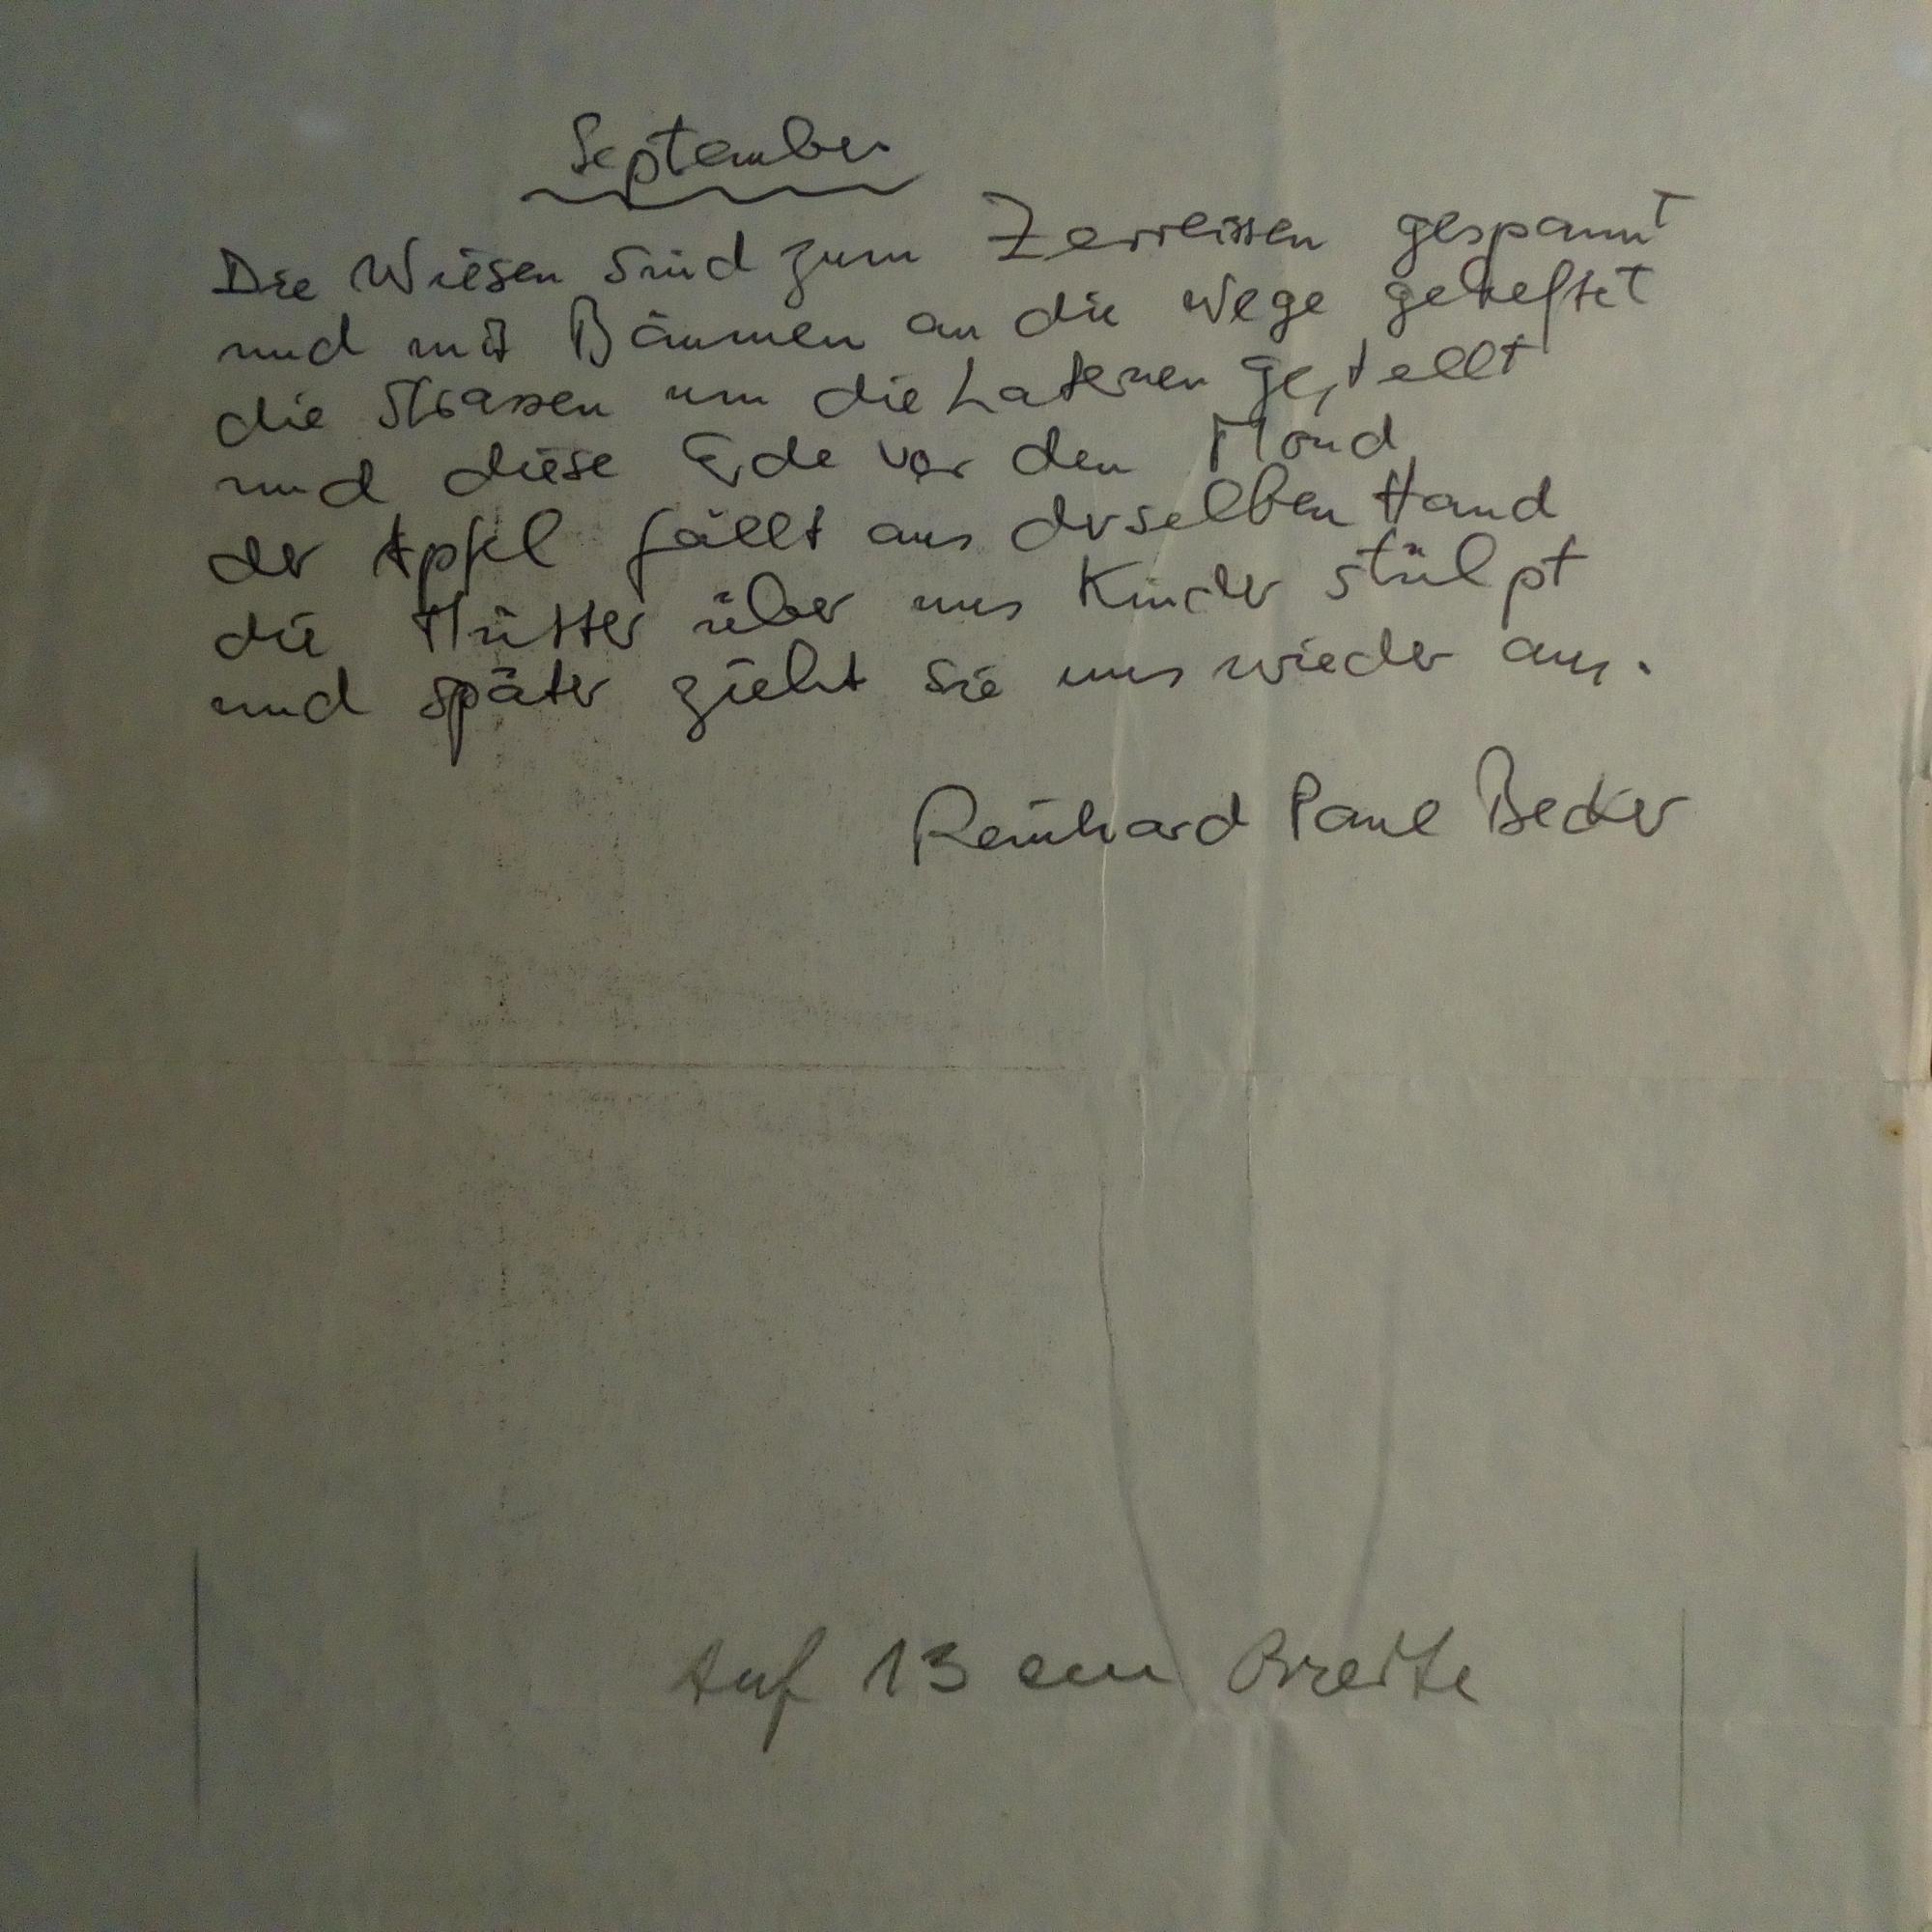 September
Die Wiesen sind zum Zerreissen gespannt
und mit Bäumen an die Wege geheftet
die Strassen um die Laternen gestellt
und diese Erde vor den Mond
der Apfel fällt aus derselben Hand
die Mütter über uns Kinder stülpt
und später zieht sie uns wieder aus.
Reinhard Paul Becker
Auf 13 cm Breite